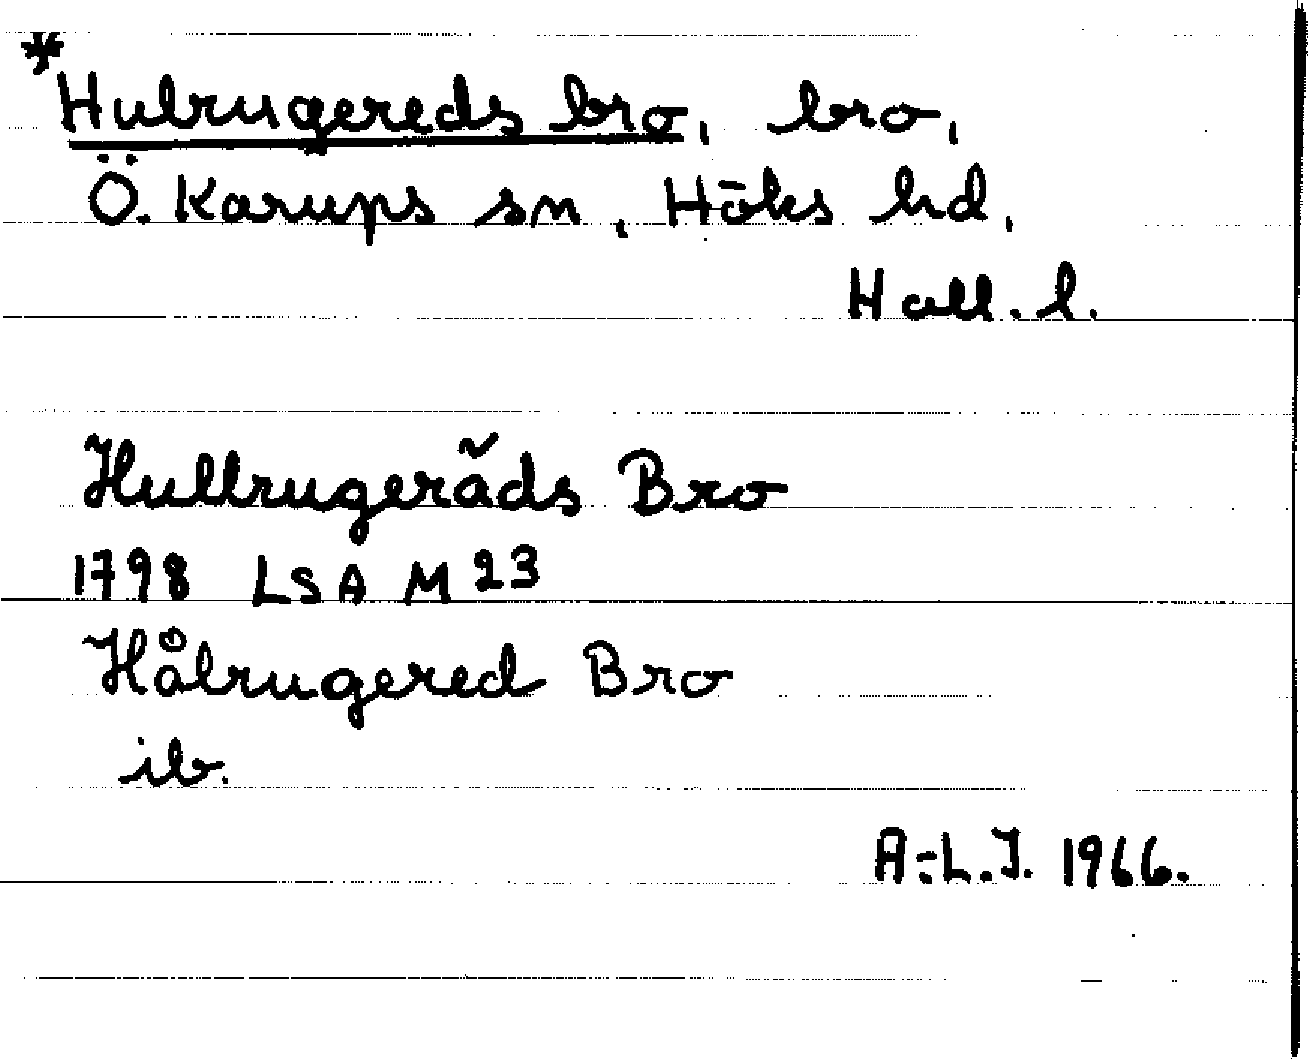 *Hulrugereds bro, bro,
Ö. Karups sn, Höks hd,
Hall. l.
Hullrugeräds Bro
1798 LSA M 23
Hålrugered Bro
ib.
A-L.J. 1966.